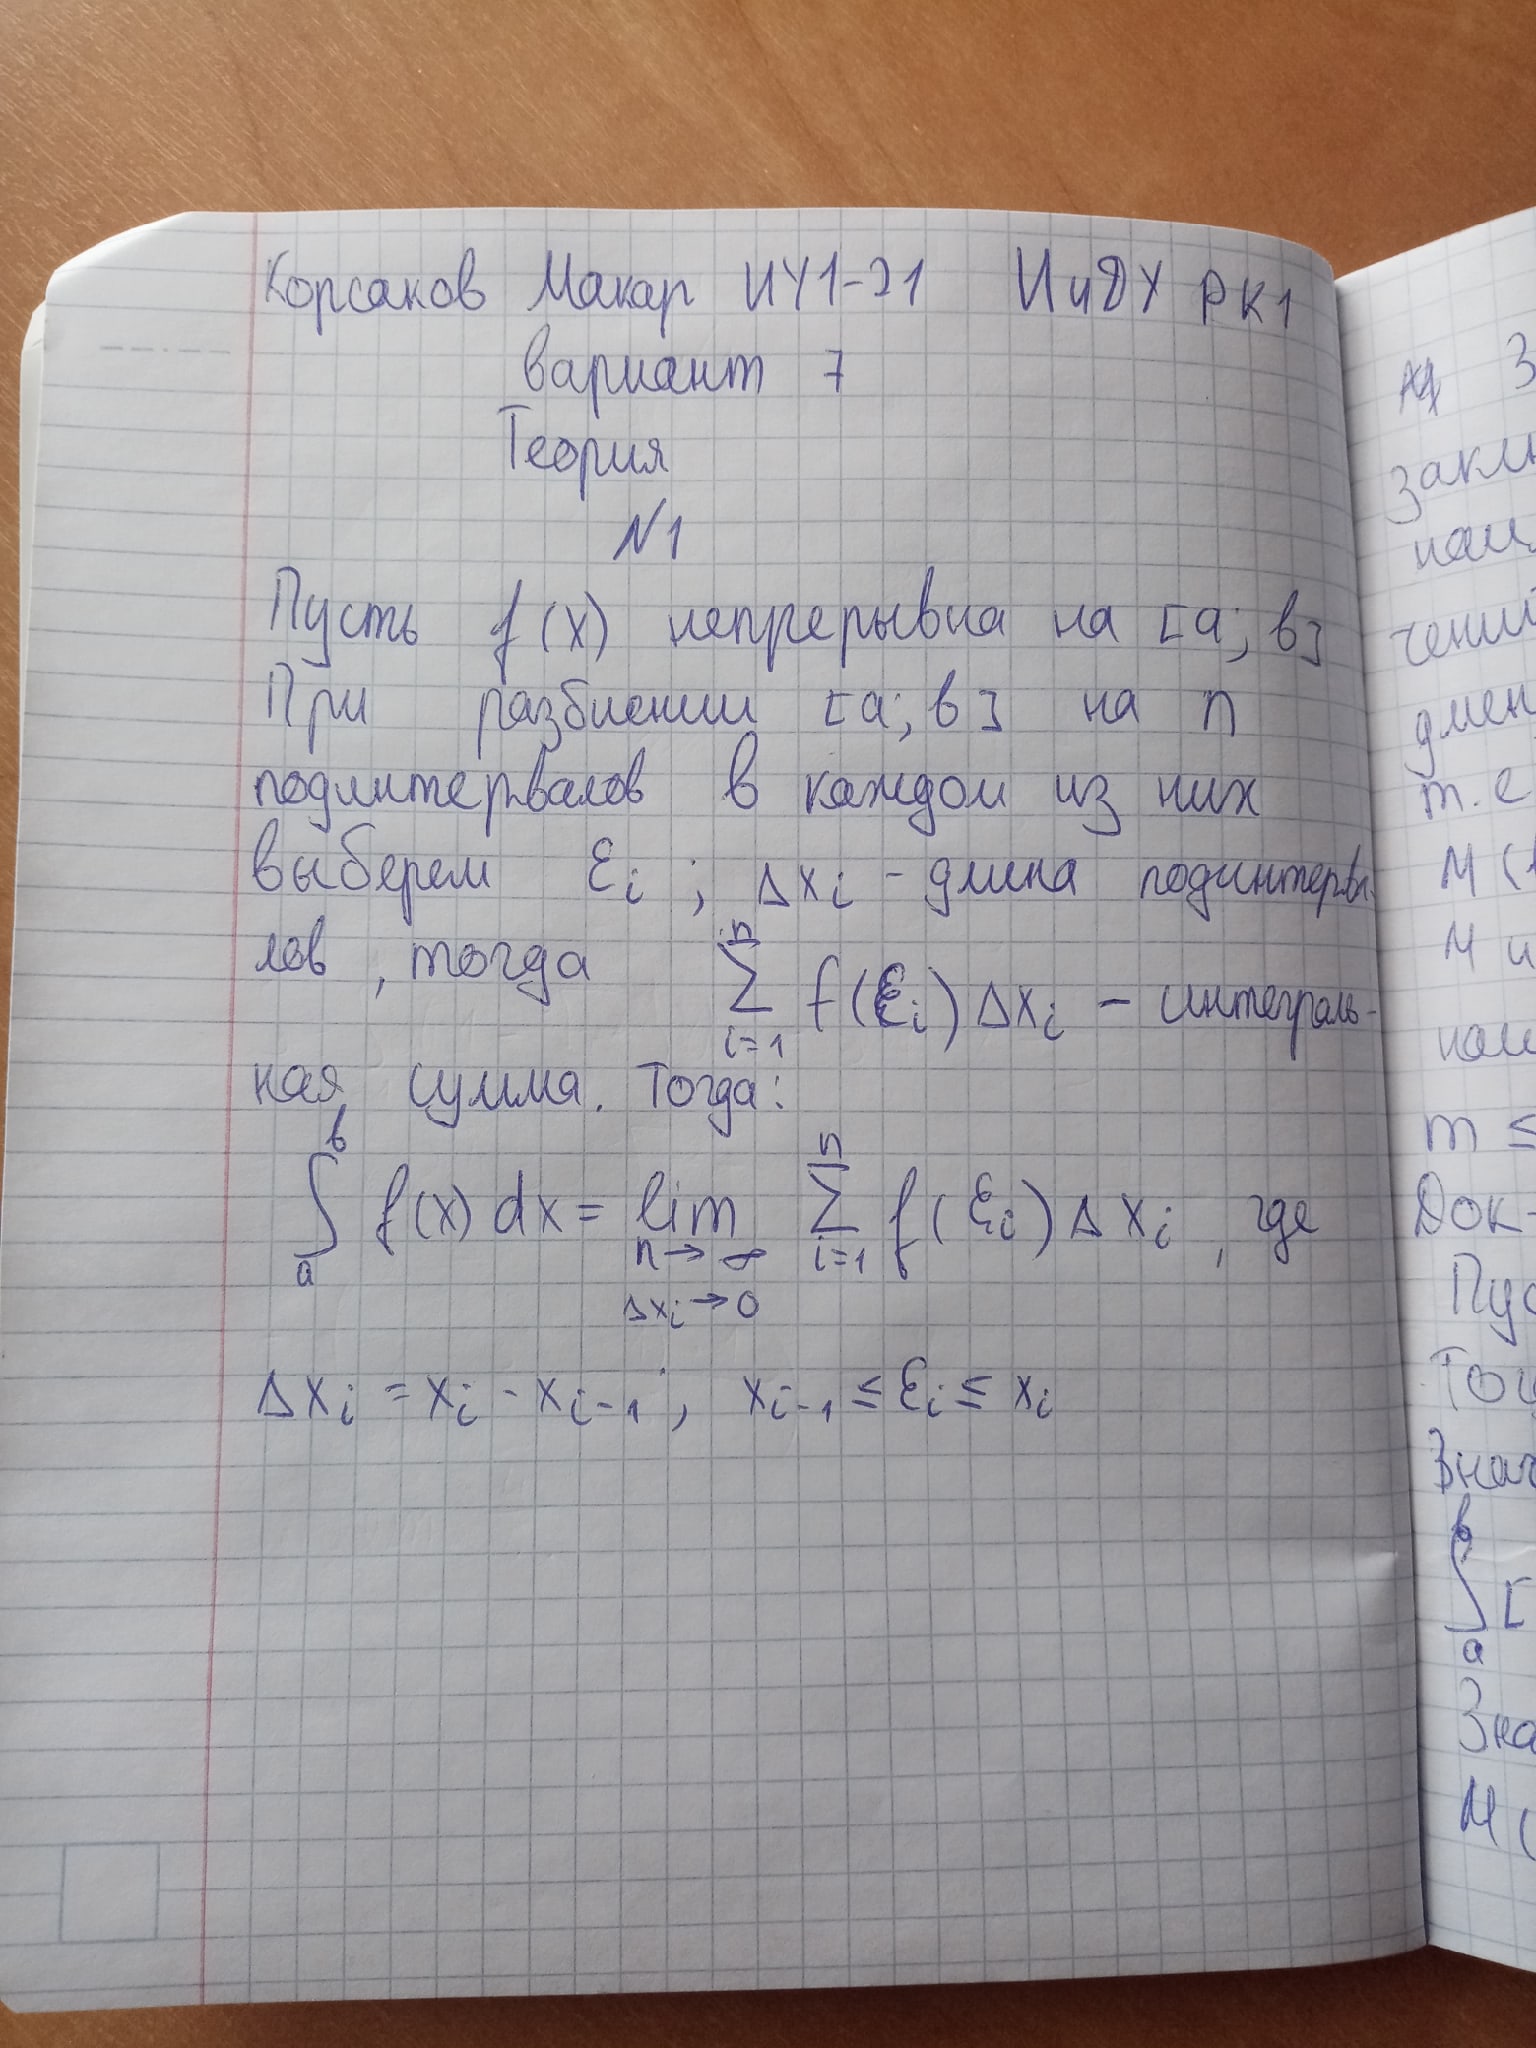 Корсаков Макар ИУ1-21 ИиДУ РК1
вариант 7
Теория
№1
Пусть f(x) непрерывна на [a; в]
При разбиении [a; в] на n
подинтервалов в каждом из них
выберем ξi ; Δxi - длина подинтерва-
лов, тогда Σ_{i=1}^{n} f(ξi) Δxi - интеграль-
ная сумма. Тогда:
∫_a^в f(x) dx = lim_{n→∞, Δxi→0} Σ_{i=1}^{n} f(ξi) Δxi , где
Δxi = xi - xi-1 ; xi-1 ≤ ξi ≤ xi
т.е
m ≤
Док-
∫_a^в [